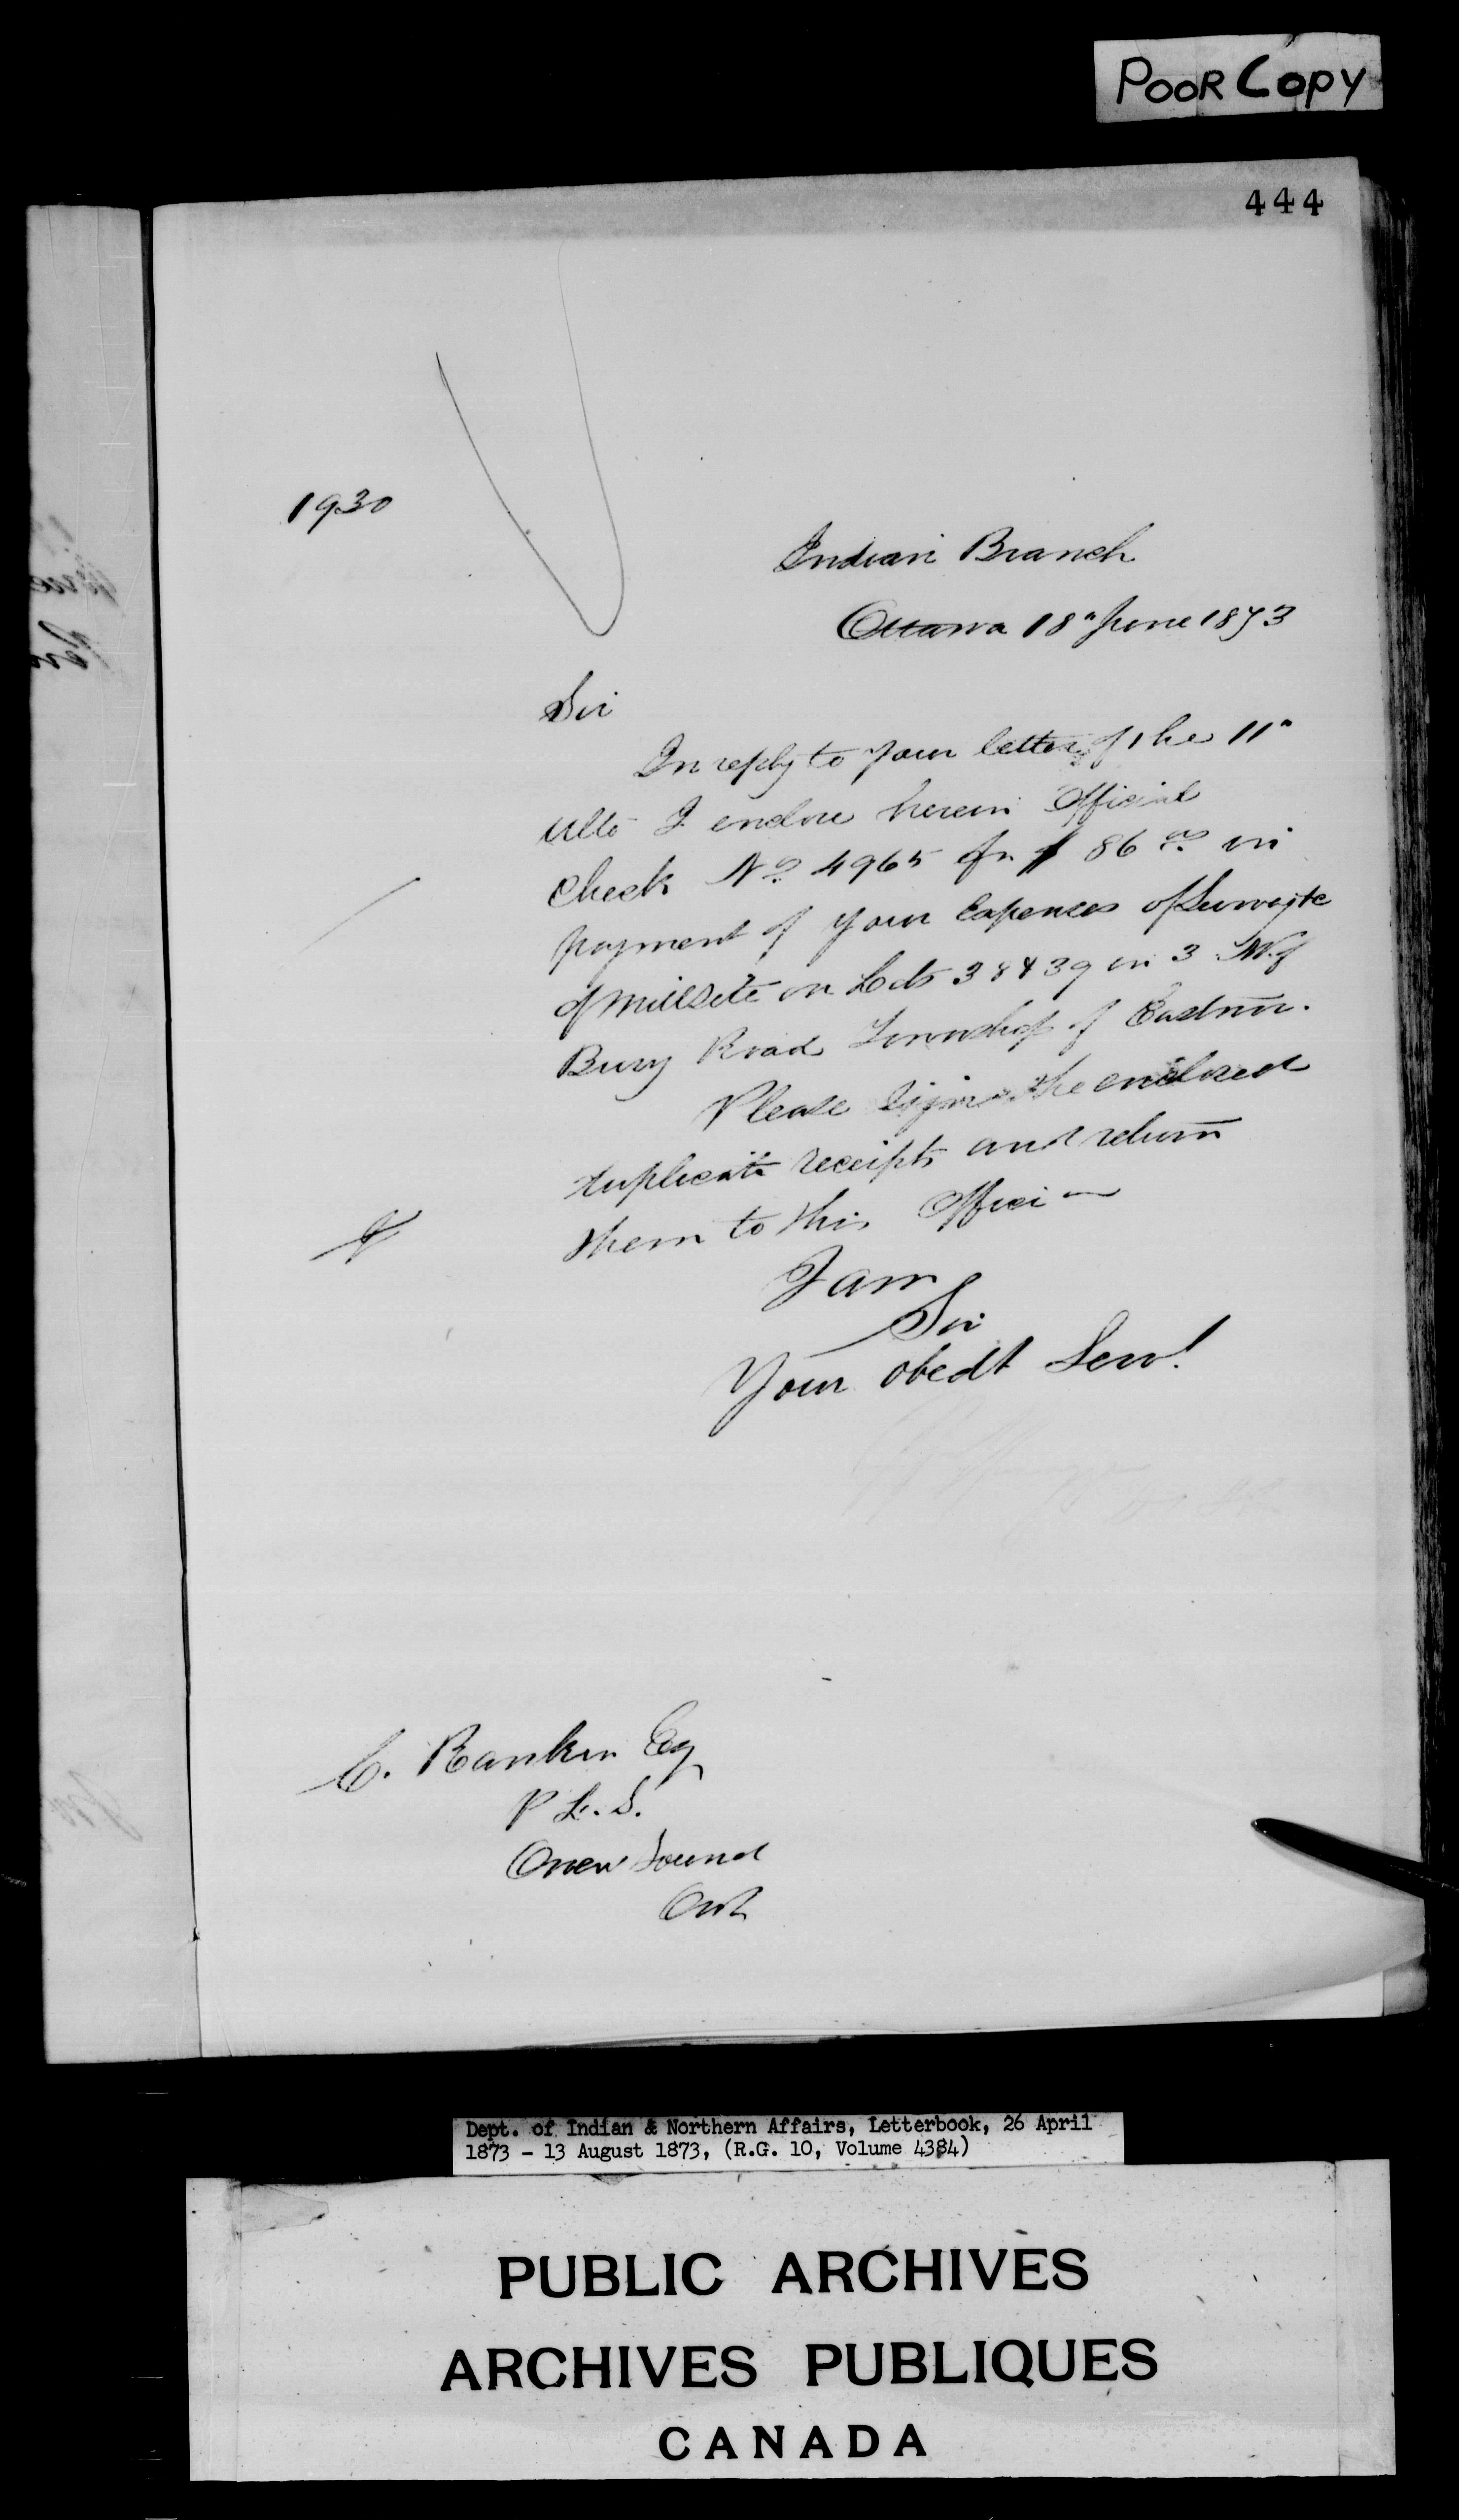 POOR COPY
444
1930
Indian Branch
Ottawa 18" June 1873
Sir
In reply to your letter of the 11"
Ulto I enclose herein Official
Check No. 4965 for $ 86 in
payment of your Expenses of Survey &c
of millsite on Lots 38 & 39 in 3 W. of
Bury Road Township of Eastnor.
Please sign the enclosed
duplicate receipts and return
them to this Office —
I am
Sir
Your obedt Servt
C. Rankin Esq
P. L. S.
Owen Sound
Ont
Dept. of Indian & Northern Affairs, Letterbook, 26 April
1873 - 13 August 1873, (R.G. 10, Volume 4384)
PUBLIC ARCHIVES
ARCHIVES PUBLIQUES
CANADA